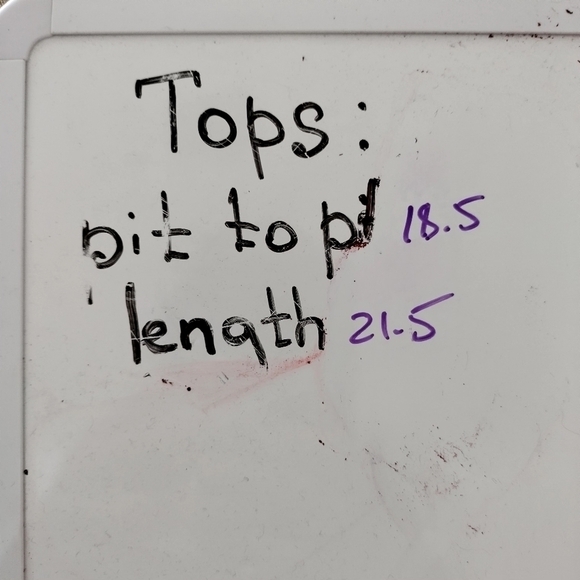 Tops:
pit to pit 18.5
length 21.5